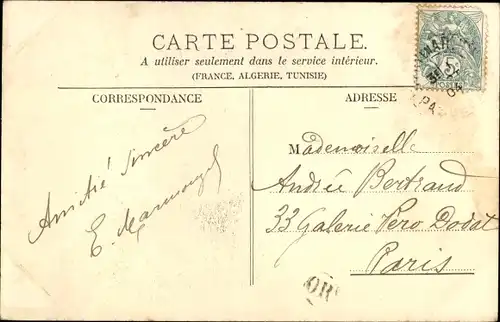 CARTE POSTALE.
A utiliser seulement dans le service intérieur.
(FRANCE, ALGERIE, TUNISIE)
CORRESPONDANCE
ADRESSE
Amitié sincère
E.
Mademoiselle
Andrée Bertrand
33 Galerie Vero Dodat
Paris
OR
5
04